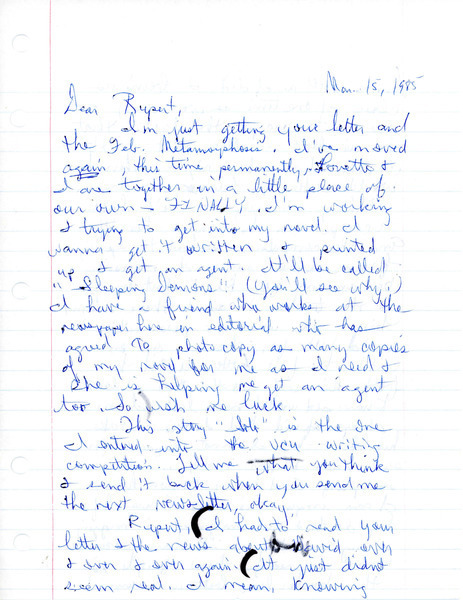 Mar. 15, 1985
Dear Rupert,
I'm just getting your letter and
the Feb. Metamorphosis. I've moved
again, this time, permanently, &
I are together in a little place of
our own — FINALLY. I'm working
& trying to get into my novel. I
wanna get it written & printed
up & get an agent. It'll be called
"Sleeping Demons"! (You'll see why!)
I have a friend who works at the
newspaper here in editorial who has
agreed to photocopy as many copies
of my novel for me as I need &
she is helping me get an agent
too. So wish me luck.
This story is the one
I entered into the VCU writing
competition. Tell me what you think
& send it back when you send me
the next newsletter, okay.
Rupert, I had to read your
letter & the news about over
& over & over again. It just didn't
seem real. I mean, knowing